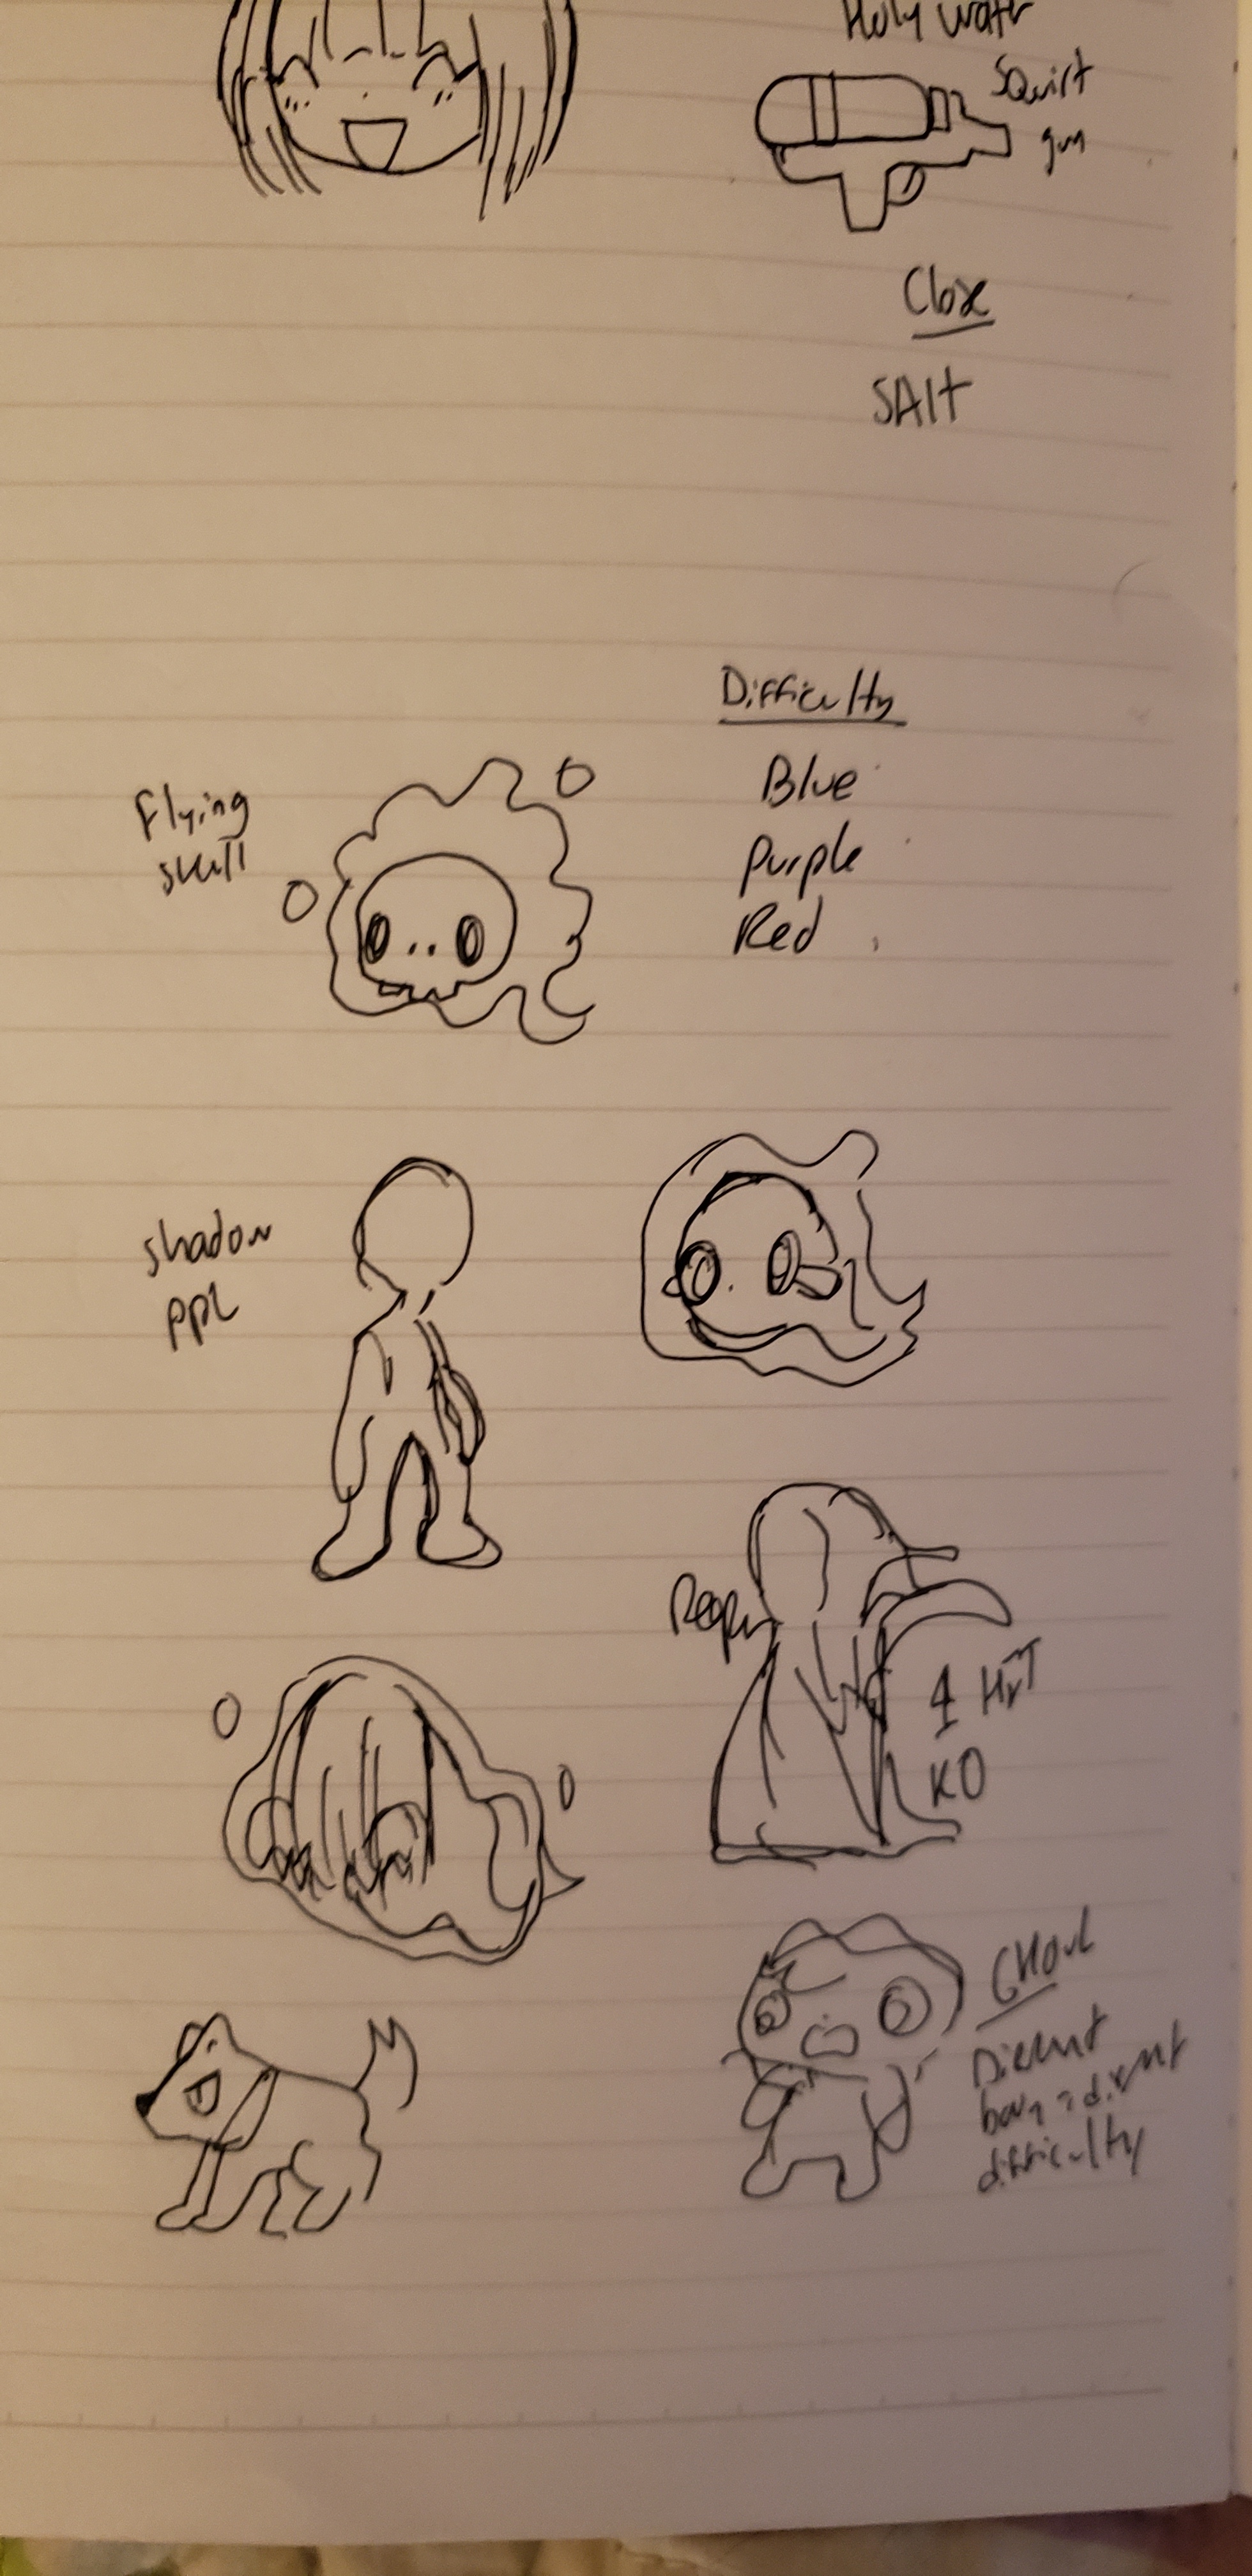 Holy water
Squirt
gun
Close
SAlt
Difficulty
Blue
Purple
Red
Flying
skull
shadow
ppl
Reaper
1 HIT
KO
GHOUL
difficulty